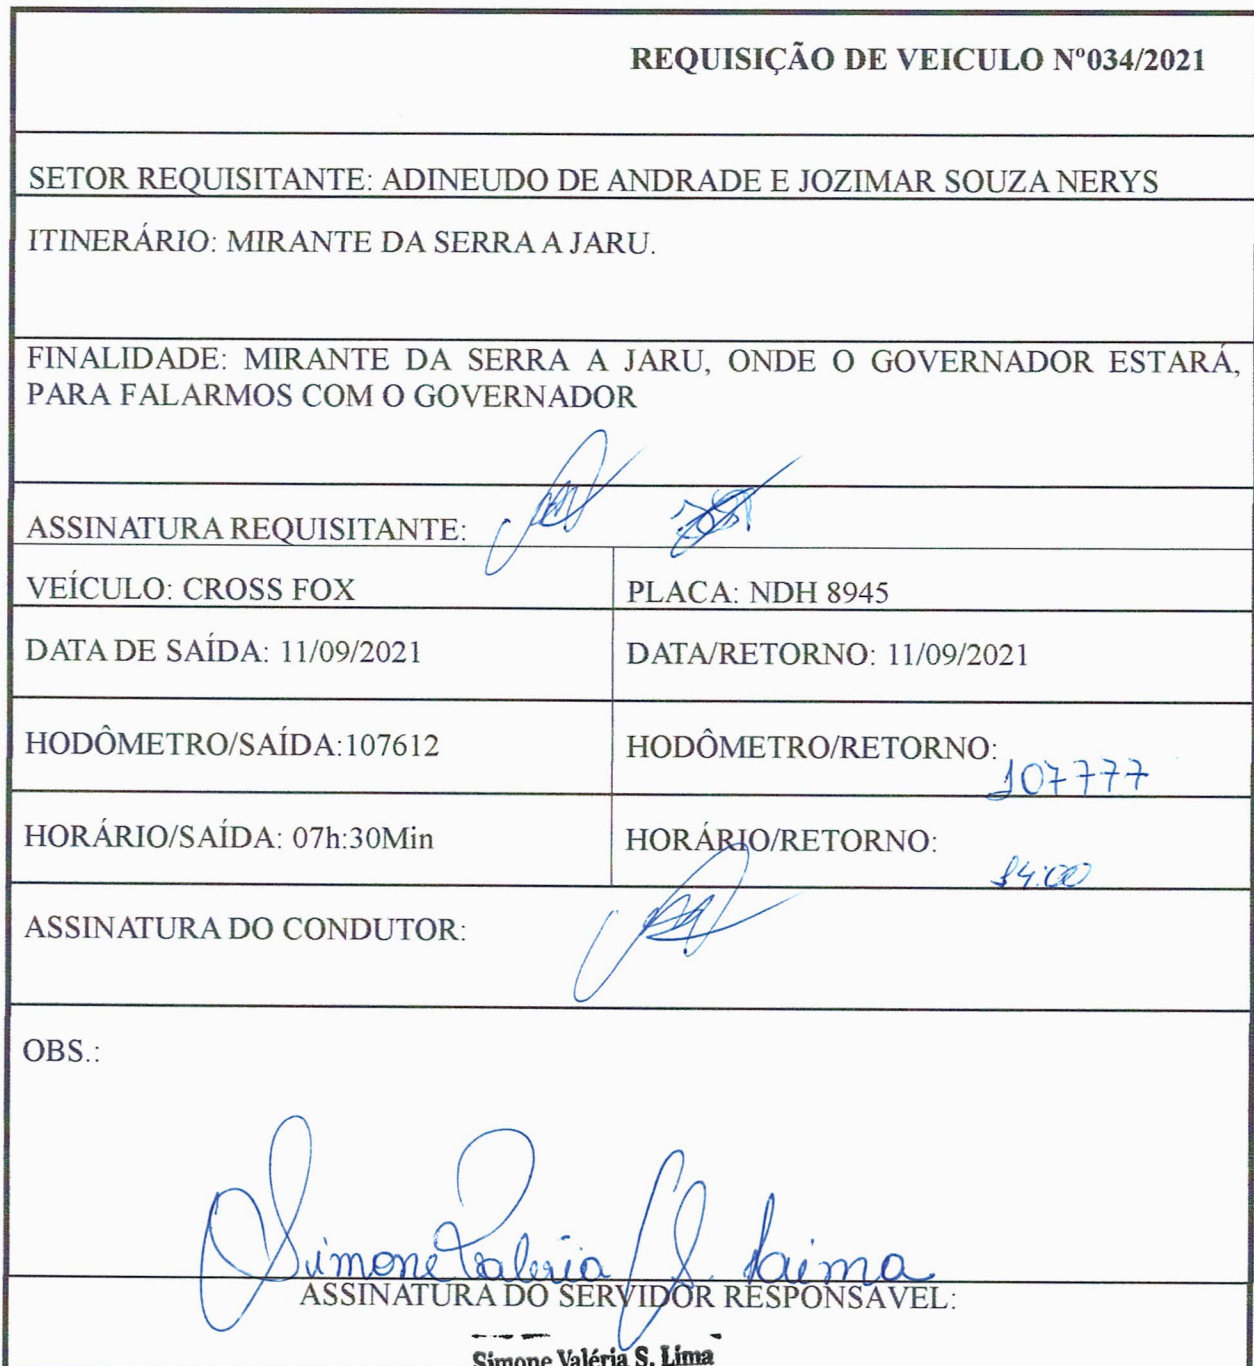 REQUISIÇÃO DE VEICULO Nº034/2021
SETOR REQUISITANTE: ADINEUDO DE ANDRADE E JOZIMAR SOUZA NERYS
ITINERÁRIO: MIRANTE DA SERRA A JARU.
FINALIDADE: MIRANTE DA SERRA A JARU, ONDE O GOVERNADOR ESTARÁ,
PARA FALARMOS COM O GOVERNADOR
ASSINATURA REQUISITANTE:
VEÍCULO: CROSS FOX PLACA: NDH 8945
DATA DE SAÍDA: 11/09/2021 DATA/RETORNO: 11/09/2021
HODÔMETRO/SAÍDA:107612 HODÔMETRO/RETORNO: 107777
HORÁRIO/SAÍDA: 07h:30Min HORÁRIO/RETORNO: 14:00
ASSINATURA DO CONDUTOR:
OBS.:
Simone Valéria S. Laima
ASSINATURA DO SERVIDOR RESPONSÁVEL:
Simone Valéria S. Lima